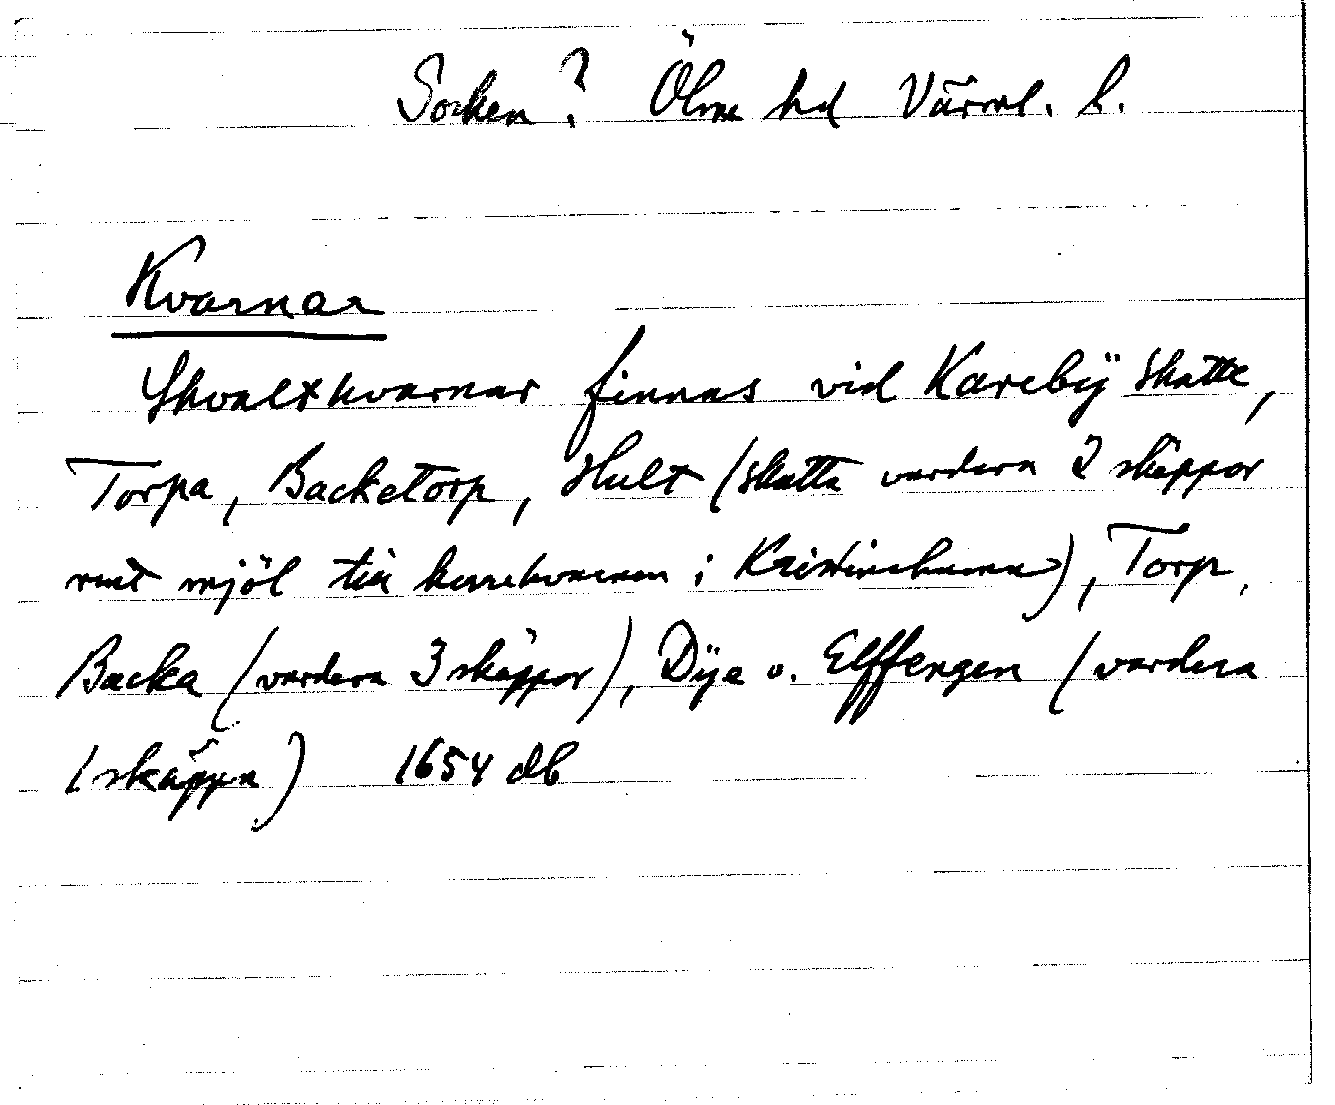 Socken? Ölme hd Värml. l.
Kvarnar
Skvaltkvarnar finnas vid Kareby skatte,
Torpa, Backetorp, Hult (skatta vardera 2 skäppor
rent mjöl till i Kristinehamn), Torp,
Backa (vardera 3 skäppor), Dye o. Elffengen (vardera
1 skäppa) 1654 db